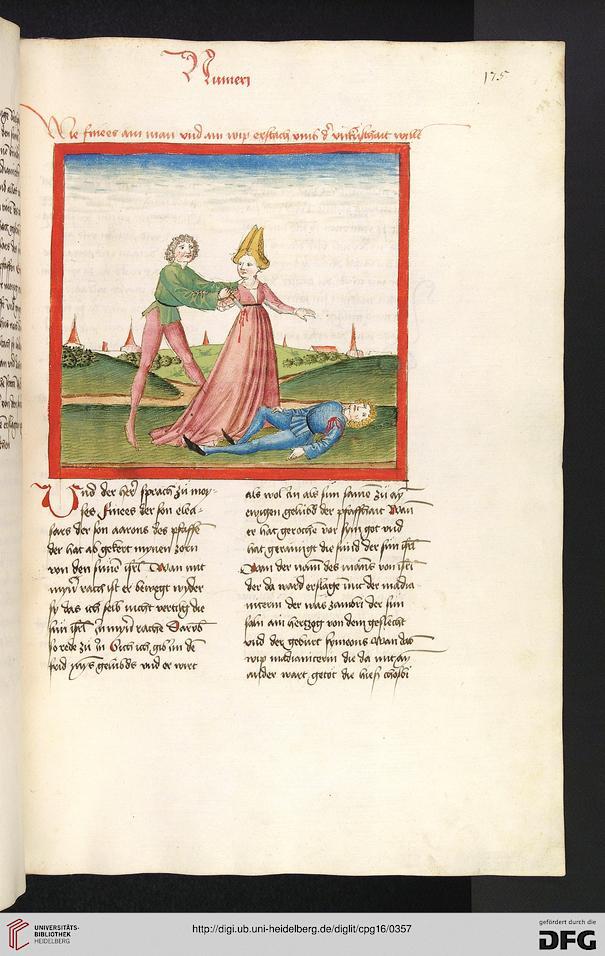 Numeri
175
Wie finees ain man vnd ain wip erstach vmb d' vnküschait will
Vnd der her sprach zü moy-
ses finees der son elea-
sars der son aarons des pfaffe
der hat ab gekert mynen zorn
von den sünen isrl Wan mit
myn rach ist er bewegt wyder
sy das ich selb nicht vertilg die
sün isrl in myn rache Darvmb
so rede zü im Sich ich gib im de
frid myns gelübds vnd er wirt
als wol im als sim samē zü ay
ewigen gelübd der pfaffhait Wan
er hat geroche vor sin got vnd
hat gerainigt die sünd der sün isrl
Wan der nam des mans von isrl
der da ward erslage mit der madia-
niterin der was zambri der sün
salu ain hertzog von dem geslecht
vnd der geburt symons Wan das
wip madianiterin die da mit ain
ander wart getöt die hiesz chosbi
UNIVERSITÄTS-
BIBLIOTHEK
HEIDELBERG
http://digi.ub.uni-heidelberg.de/diglit/cpg16/0357
gefördert durch die
DFG